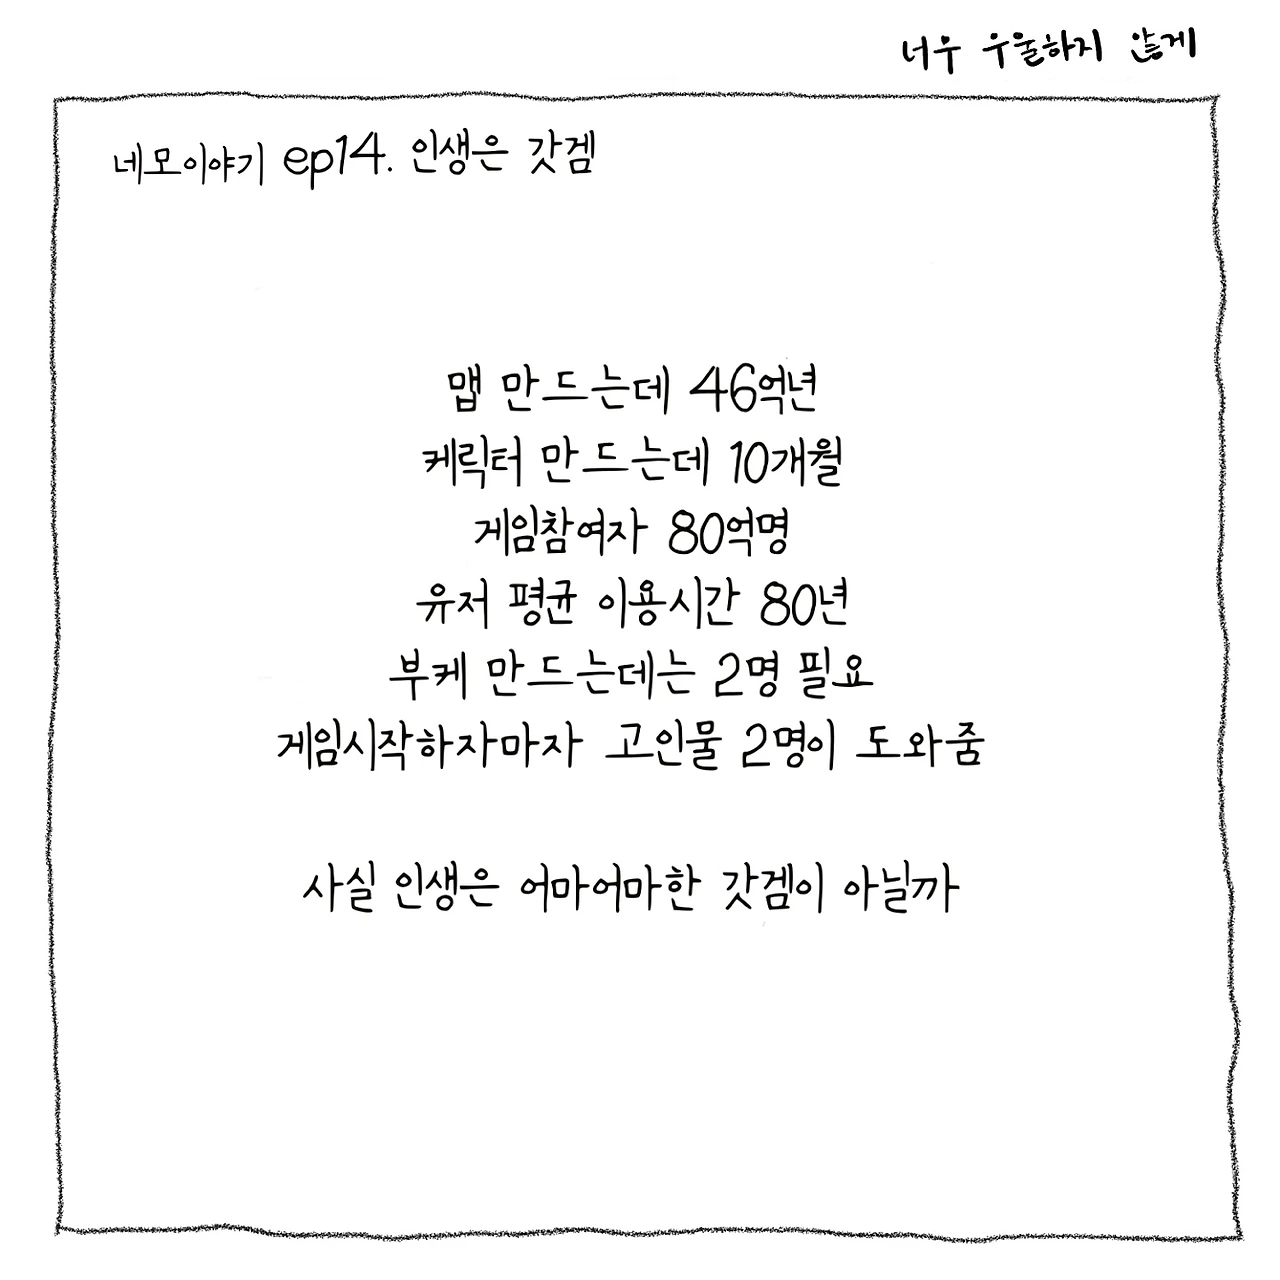 너우 우울하지 않게
네모이야기 ep14. 인생은 갓겜
맵 만드는데 46억년
케릭터 만드는데 10개월
게임참여자 80억명
유저 평균 이용시간 80년
부케 만드는데는 2명 필요
게임시작하자마자 고인물 2명이 도와줌
사실 인생은 어마어마한 갓겜이 아닐까